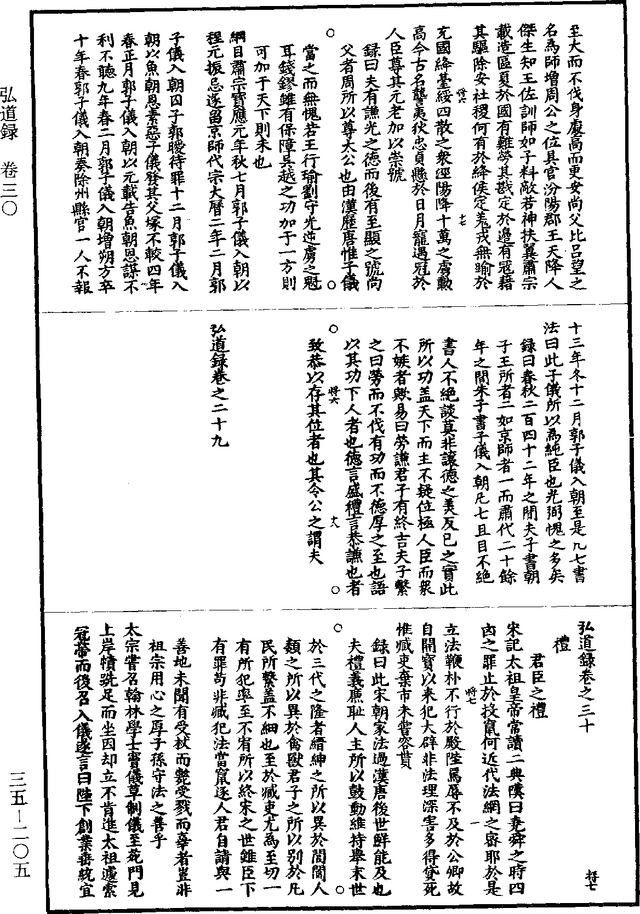 至大而不伐身處高而更安尚父比呂望之
名為師增周公之位具官汾陽郡王天降人
傑生知王佐訓師如子料敵若神扶翼肅宗
載造區夏於國有難勞其戡定於邊有寇藉
其驅除安社稷何有於絳侯定羌戎無踰於
充國絳臺綏四散之衆涇陽降十萬之虜勳
高今古名聾夷狄忠貞懸於日月寵遇冠於
人臣尊其元老加以崇號
錄曰夫有謙光之德而後有至顯之號尚
父者周所以尊太公也由漢歷唐惟子儀
當之而無愧若王行瑜劉守光逆虜之魁
耳錢鏐雖有保障吳越之功加于一方則
可加于天下則未也
綱目肅宗寶應元年秋七月郭子儀入朝以
程元振忌遂留京師代宗大曆二年二月郭
子儀入朝囚子郭曖待罪十二月郭子儀入
朝以魚朝恩素惡子儀發其父塚不較四年
春正月郭子儀入朝以元載告魚朝恩謀不
利不聽九年春二月郭子儀入朝增朔方卒
十年春郭子儀入朝奏除州縣官一人不報
十三年冬十二月郭子儀入朝至是凡七書
法曰此子儀所以為純臣也光弼愧之多矣
錄曰春秋二百四十二年之間夫子書朝
于王所者二如京師者一而肅代二十餘
年之間朱子書子儀入朝凡七且目不絕
書人不絕談莫非讓德之美反已之實此
所以功蓋天下而主不疑位極人臣而衆
不嫉者歟易曰勞謙君子有終吉夫子繫
之曰勞而不伐有功而不德厚之至也語
以其功下人者也德言盛禮言恭謙也者
致恭以存其位者也其令公之謂夫
弘道録卷之二十九
弘道録卷之三十
禮
君臣之禮
宋記太祖皇帝常讀二典嘆曰堯舜之時四
凶之罪止於投竄何近代法網之密耶於是
立法鞭朴不行於殿陛罵辱不及於公卿故
自開寶以來犯大辟非法理深害多得貸死
惟贓吏棄市未嘗容貰
錄曰此宋朝家法過漢唐後世鮮能及也
夫禮義廉恥人主所以鼓動維持舉末世
於三代之隆者縉紳之所以異於閭閻人
類之所以異於禽獸君子之所以別於凡
民所繫蓋不細也至於贓吏尤為至切一
有所犯率至不宥所以終宋之世雖臣下
有罪苟非贓犯法當竄逐人君自請與一
善地未聞有受杖而斃受戮而辜者豈非
祖宗用心之厚子孫守法之善乎
太宗嘗召翰林學士竇儀草制儀至苑門見
上岸幘跣足而坐因却立不肯進太祖遽索
冠帶而後召入儀遂言曰陛下創業垂統宜
弘道録 卷三〇
三五—二〇五